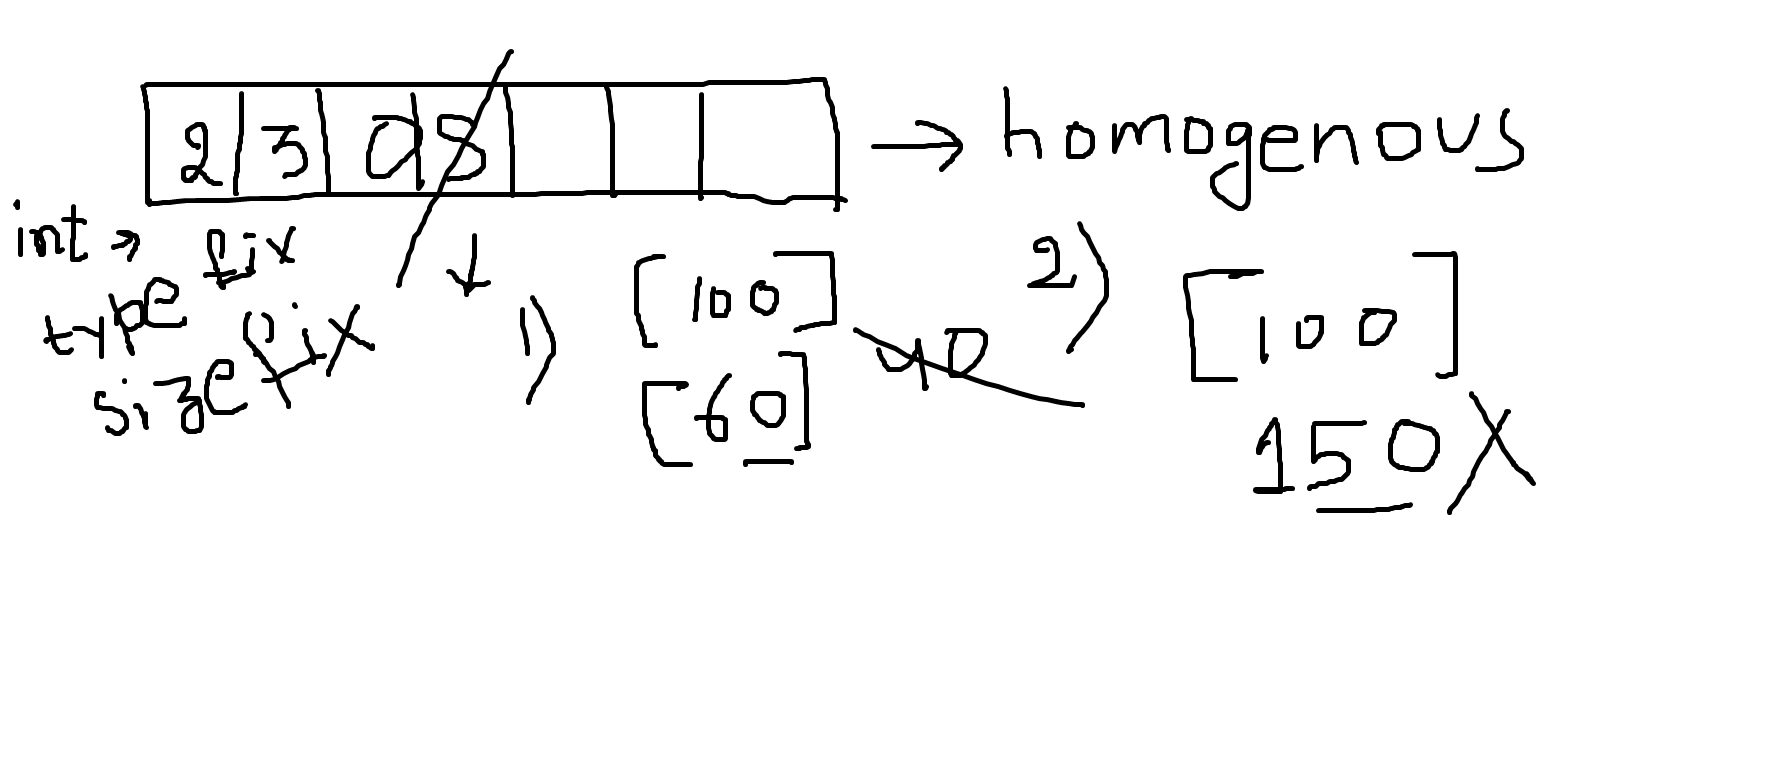 2 3 a 8 → homogenous
int → type fix
size fix
1) [100]
[60]
40
2) [100]
150 X